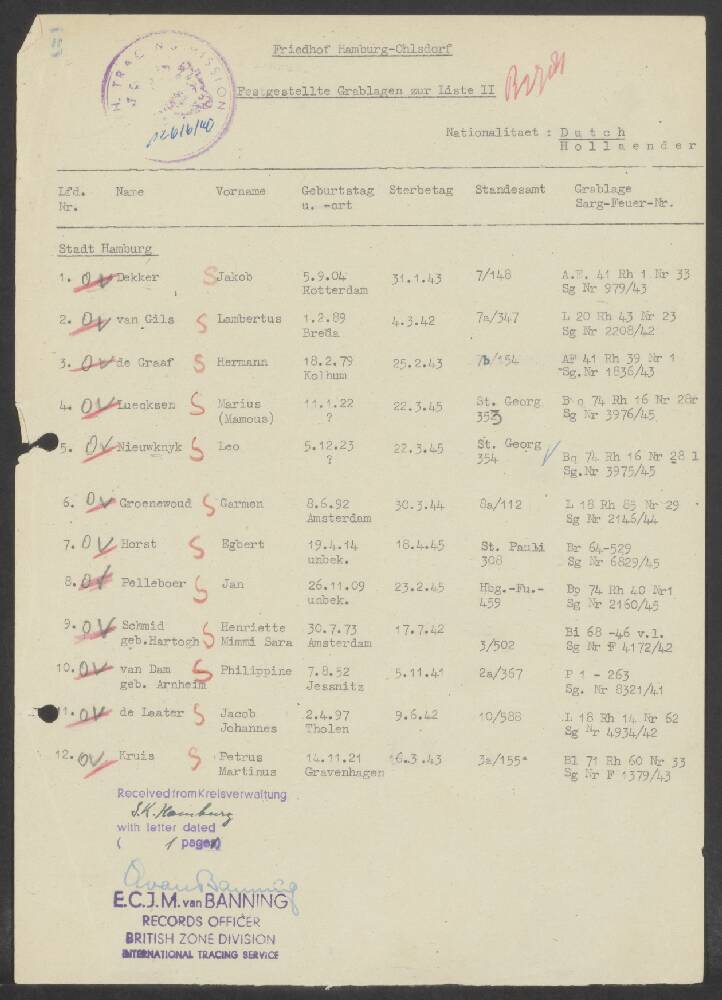 Friedhof Hamburg-Ohlsdorf
Festgestellte Grablagen zur Liste II
Nationalitaet : Dutch
Hollaender
Lfd. Name Vorname Geburtstag Sterbetag Standesamt Grablage
Nr. u. -ort Sarg-Feuer-Nr.
Stadt Hamburg
1. Dekker S Jakob 5.9.04 31.1.43 7/148 A.E. 41 Rh 1 Nr 33
Rotterdam Sg Nr 979/43
2. van Gils S Lambertus 1.2.89 4.3.42 7a/347 L 20 Rh 43 Nr 23
Breda Sg Nr 2208/42
3. de Graaf S Hermann 18.2.79 25.2.43 7b/154 AF 41 Rh 39 Nr 1
Kolhum Sg.Nr 1836/43
4. Luecksen S Marius 11.1.22 22.3.45 St. Georg B q 74 Rh 16 Nr 28r
(Mamous) ? 353 Sg Nr 3976/45
5. Nieuwknyk S Leo 5.12.23 22.3.45 St. Georg
? 354 Bq 74 Rh 16 Nr 28 l
Sg.Nr 3975/45
6. Groenewoud S Garmen 8.6.92 30.3.44 8a/112 L 18 Rh 85 Nr 29
Amsterdam Sg Nr 2146/44
7. Horst S Egbert 19.4.14 18.4.45 St. Pauli Br 64-529
unbek. 308 Sg Nr 6829/45
8. Pelleboer S Jan 26.11.09 23.2.45 Hbg.-Fu.- Bp 74 Rh 40 Nr1
unbek. 459 Sg Nr 2160/45
9. Schmid S Henriette 30.7.73 17.7.42 Bi 68 -46 v.l.
geb.Hartogh Mimmi Sara Amsterdam 3/502 Sg Nr F 4172/42
10. van Dam S Philippine 7.8.52 5.11.41 2a/367 P 1 - 263
geb. Arnheim Jessnitz Sg. Nr 8321/41
11. de Laater S Jacob 2.4.97 9.6.42 10/588 L 18 Rh 14 Nr 62
Johannes Tholen Sg Nr 4934/42
12. Kruis S Petrus 14.11.21 16.3.43 3a/155 Bl 71 Rh 60 Nr 33
Martinus Gravenhagen Sg Nr F 1379/43
Received from Kreisverwaltung
S.K. Hamburg
with letter dated
( 1 pages)
E.C.J.M. van BANNING
RECORDS OFFICER
BRITISH ZONE DIVISION
INTERNATIONAL TRACING SERVICE